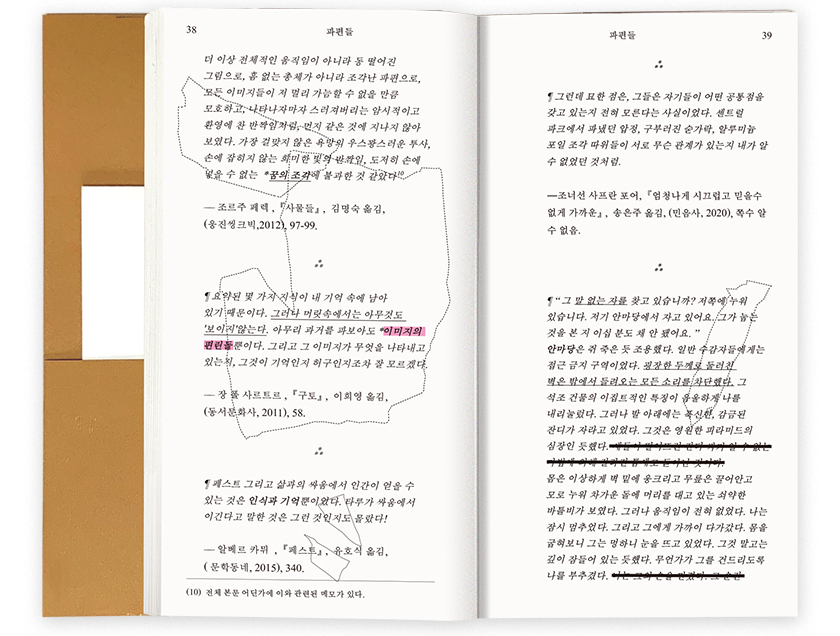 38
파편들
더 이상 전체적인 움직임이 아니라 동 떨어진
그림으로, 흠 없는 총체가 아니라 조각난 파편으로,
모든 이미지들이 저 멀리 가늠할 수 없을 만큼
모호하고, 나타나자마자 스러져버리는 암시적이고
환영에 찬 반짝임처럼, 먼지 같은 것에 지나지 않아
보였다. 가장 걸맞지 않은 욕망의 우스꽝스러운 투사,
손에 잡히지 않는 희미한 빛의 반짝임, 도저히 손에
넣을 수 없는 *꿈의 조각에 불과한 것 같았다¹⁰
— 조르주 페렉 , 『사물들』, 김명숙 옮김,
(웅진씽크빅,2012), 97-99.
¶ 요약된 몇 가지 지식이 내 기억 속에 남아
있기 때문이다. 그러나 머릿속에서는 아무것도
'보이지'않는다. 아무리 과거를 파보아도 *이미지의
편린들뿐이다. 그리고 그 이미지가 무엇을 나타내고
있는지, 그것이 기억인지 허구인지조차 잘 모르겠다.
— 장 폴 사르트르 , 『구토』, 이희영 옮김,
(동서문화사, 2011), 58.
¶ 페스트 그리고 삶과의 싸움에서 인간이 얻을 수
있는 것은 인식과 기억뿐이었다. 타루가 싸움에서
이긴다고 말한 것은 그런 것인지도 몰랐다!
— 알베르 카뮈 , 『페스트』, 유호식 옮김,
( 문학동네, 2015), 340.
(10) 전체 본문 어딘가에 이와 관련된 메모가 있다.
파편들
39
¶ 그런데 묘한 점은, 그들은 자기들이 어떤 공통점을
갖고 있는지 전혀 모른다는 사실이었다. 센트럴
파크에서 파냈던 압정, 구부러진 숟가락, 알루미늄
포일 조각 따위들이 서로 무슨 관계가 있는지 내가 알
수 없었던 것처럼.
—조너선 사프란 포어, 『엄청나게 시끄럽고 믿을수
없게 가까운』, 송은주 옮김, (민음사, 2020), 쪽수 알
수 없음.
¶ “ 그 말 없는 자를 찾고 있습니까? 저쪽에 누워
있습니다. 저기 안마당에서 자고 있어요. 그가 눕는
것을 본 지 이십 분도 채 안 됐어요. ”
안마당은 쥐 죽은 듯 조용했다. 일반 수감자들에게는
접근 금지 구역이었다. 굉장한 두께로 둘러친
벽은 밖에서 들려오는 모든 소리를 차단했다. 그
석조 건물의 이집트적인 특징이 음울하게 나를
내리눌렀다. 그러나 발 아래에는 폭신한, 감금된
잔디가 자라고 있었다. 그것은 영원한 피라미드의
심장인 듯했다.
몸은 이상하게 벽 밑에 웅크리고 무릎은 끌어안고
모로 누워 차가운 돌에 머리를 대고 있는 쇠약한
바틀비가 보였다. 그러나 움직임이 전혀 없었다. 나는
잠시 멈추었다. 그리고 그에게 가까이 다가갔다. 몸을
굽혀보니 그는 멍하니 눈을 뜨고 있었다. 그것 말고는
깊이 잠들어 있는 듯했다. 무언가가 그를 건드리도록
나를 부추겼다.